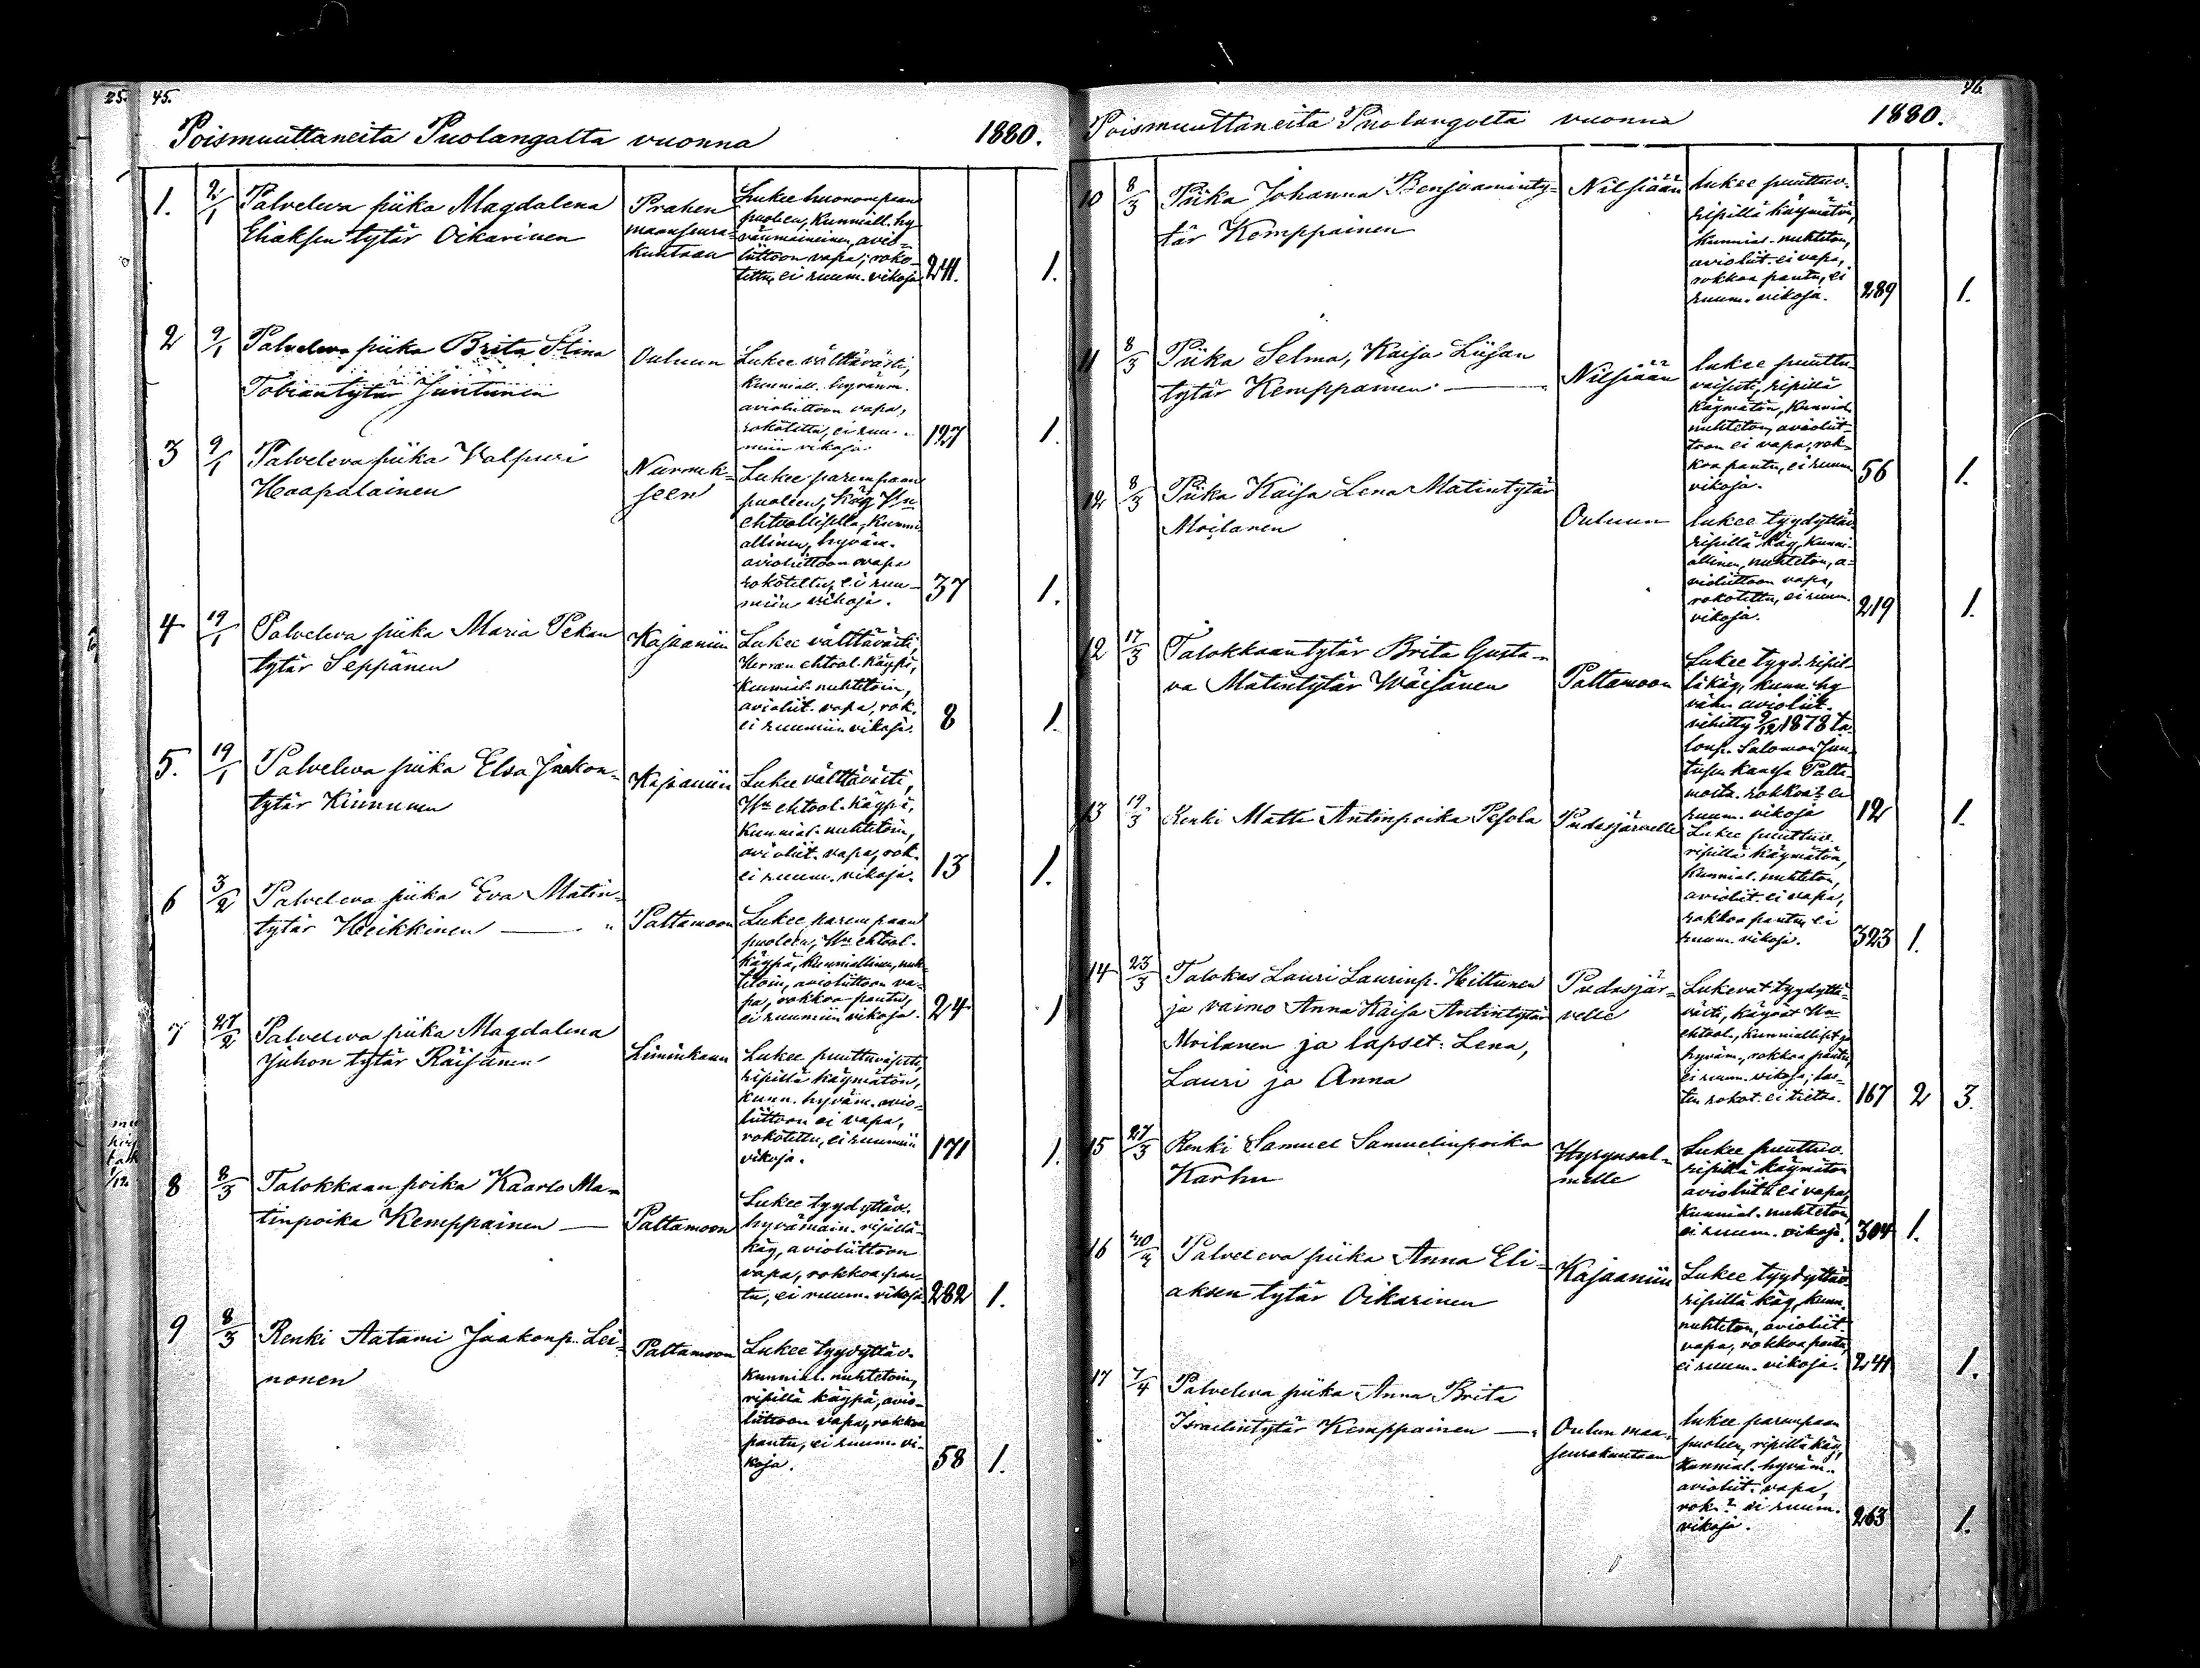 25. 45.
Poismuuttaneita Puolangalta vuonna 1880.
1. 9/1 Palveleva piika Magdalena
Eliaksen tytär Oikarinen
Prahen
maanseura-
kuntaan
Lukee huonompaan
puoleen, kunniall. hy-
vänmaineinen, avio-
liittoon vapa; roko-
tettu, ei ruum. vikoja 241. 1.
2 9/1 Palveleva piika Brita Stina
Tobiantytär Juntunen
Ouluun
Lukee välttävästi,
kunniall. hyvänm.
avioliittoon vapa,
rokotettu, ei ruu-
miin vikoja. 127 1.
3 9/1 Palveleva piika Valpuri
Haapalainen
Nurmek-
seen
Lukee parempaan
puoleen, käy Hn
ehtoollisella, kunni-
allinen, hyväm.
avioliittoon vapa
rokotettu, ei ruu-
miin vikoja. 37 1.
4 19/1 Palveleva piika Maria Pekan
tytär Seppänen
Kajaaniin
Lukee välttävästi,
Herran ehtool. käypä,
kunnial. nuhtetoin,
avioliit. vapa, rok.
ei ruumiin vikoja. 8 1.
5. 19/1 Palveleva piika Elsa Jaakon-
tytär Kinnunen
Kajaaniin
Lukee välttävästi,
Hn ehtool. käypä,
kunnial. nuhtetoin,
avioliit. vapa, rok.
ei ruum. vikoja. 13 1.
6 3/2 Palveleva piika Eva Matin-
tytär Heikkinen
Paltamoon
Lukee parempaan
puoleen, Hn ehtool.
käypä, kunniallinen, nuh-
tetoin, avioliittoon va-
pa, rokkoa pantu,
ei ruumiin vikoja. 24 1
7 27/2 Palveleva piika Magdalena
Juhon tytär Räisänen
Liminkaan
Lukee puuttuvaisesti,
ripillä käymätön,
kunn. hyväm. avio-
liittoon ei vapa,
rokotettu, ei ruumiin
vikoja. 171 1.
8 8/3 Talokkaan poika Kaarlo Ma-
tinpoika Kemppainen
Paltamoon
Lukee tyydyttäv.
hyvämain. ripillä
käy, avioliittoon
vapa, rokkoa pan-
tu, ei ruum. vikoja 282 1.
9 8/3 Renki Aatami Jaakonp. Lei-
nonen
Paltamoon
Lukee tyydyttäv.
kunnial. nuhtetoin,
ripillä käypä, avio-
liittoon vapa, rokkoa
pantu, ei ruum. vi-
koja. 58 1.
46.
Poismuuttaneita Puolangolta vuonna 1880.
10 8/3 Piika Johanna Benjaminty-
tär Komppainen
Nilsiään
lukee puuttuv.
ripillä käymätön,
kunnial. nuhteton,
avioliit. ei vapa,
rokkoa pantu, ei
ruum. vikoja. 289 1.
11 8/3 Piika Selma, Kaisa Liisan
tytär Kemppainen
Nilsiään
lukee puuttu-
vaisesti, ripillä
käymätön, kunnial.
nuhteton, avioliit-
toon ei vapa, rok-
koa pantu, ei ruum.
vikoja. 56 1.
12 8/3 Piika Kaisa Lena Matintytär
Moilanen
Ouluun
lukee tyydyttäv.
ripillä käy, kunni-
allinen, nuhteton, a-
violiittoon vapa,
rokotettu, ei ruum.
vikoja. 219 1.
12 17/3 Talokkaantytär Brita Gusta-
va Matintytär Wäisänen
Paltamoon
Lukee tyyd. ripil-
lä käy, kunn. hy-
väm. avioliit.
vihitty 9/12 1878 ta-
lonp. Salomon Jun-
tusen kanssa Palta-
mosta. rokkoa? ei
ruum. vikoja 12 1.
13 19/3 Renki Matti Antinpoika Pesola
Pudasjärvelle
Lukee puuttuv.
ripillä käymätön,
kunnial. nuhteton,
avioliit. ei vapa,
rokkoa pantu, ei
ruum. vikoja. 323 1.
14 23/3 Talokas Lauri Laurinp. Hiltunen
ja vaimo Anna Kaisa Antintytär
Moilanen ja lapset: Lena,
Lauri ja Anna
Pudasjär-
velle
Lukevat tyydyttä-
västi, käyvät Hn
ehtool., kunnialliset ja
hyväm., rokkoa pantu,
ei ruum. vikoja; las-
ten rokot. ei tietoa. 167 2 3.
15 27/3 Renki Samuel Samuelinpoika
Karhu
Hyrynsal-
melle
Lukee puuttuv.
ripillä käymätön
avioliitt. ei vapa,
kunnial. nuhteton,
ei ruum. vikoja. 304 1.
16 30/3 Palveleva piika Anna Eli-
aksen tytär Oikarinen
Kajaaniin
Lukee tyydyttäv.
ripillä käy, kunn.
nuhteton, avioliit.
vapa, rokkoa pantu,
ei ruum. vikoja. 241 1.
17 7/4 Palveleva piika Anna Brita
Israelintytär Kemppainen
Oulun maa-
seurakuntaan
lukee parempaan
puoleen, ripillä käy,
kunnial. hyväm.
avioliit. vapa,
rok.? ei ruum.
vikoja. 263 1.